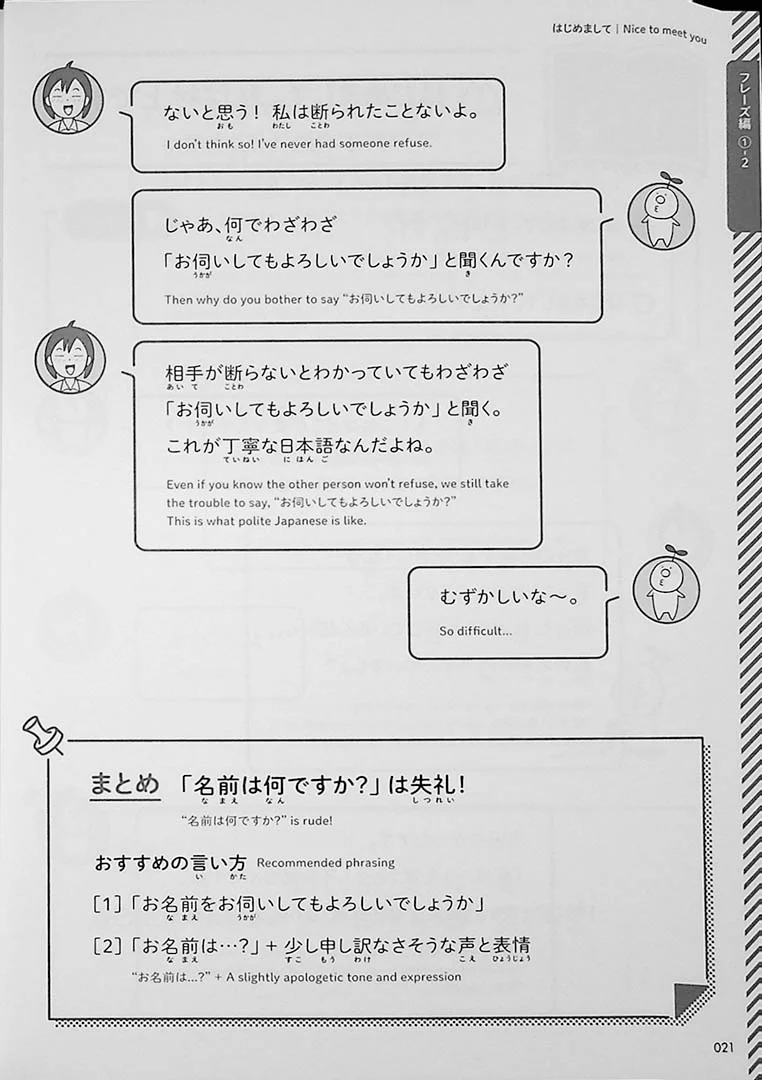 はじめまして | Nice to meet you
フレーズ編 ①-2
ないと思う! 私は断られたことないよ。
おも わたし ことわ
I don't think so! I've never had someone refuse.
じゃあ、何でわざわざ
なん
「お伺いしてもよろしいでしょうか」と聞くんですか?
うかが き
Then why do you bother to say “お伺いしてもよろしいでしょうか?”
相手が断らないとわかっていてもわざわざ
あいて ことわ
「お伺いしてもよろしいでしょうか」と聞く。
うかが き
これが丁寧な日本語なんだよね。
ていねい にほんご
Even if you know the other person won't refuse, we still take
the trouble to say, “お伺いしてもよろしいでしょうか?”
This is what polite Japanese is like.
むずかしいな〜。
So difficult...
まとめ 「名前は何ですか?」は失礼!
なまえ なん しつれい
“名前は何ですか?” is rude!
おすすめの言い方 Recommended phrasing
い かた
[1]「お名前をお伺いしてもよろしいでしょうか」
なまえ うかが
[2]「お名前は…?」+ 少し申し訳なさそうな声と表情
なまえ すこ もう わけ こえ ひょうじょう
“お名前は...?” + A slightly apologetic tone and expression
021